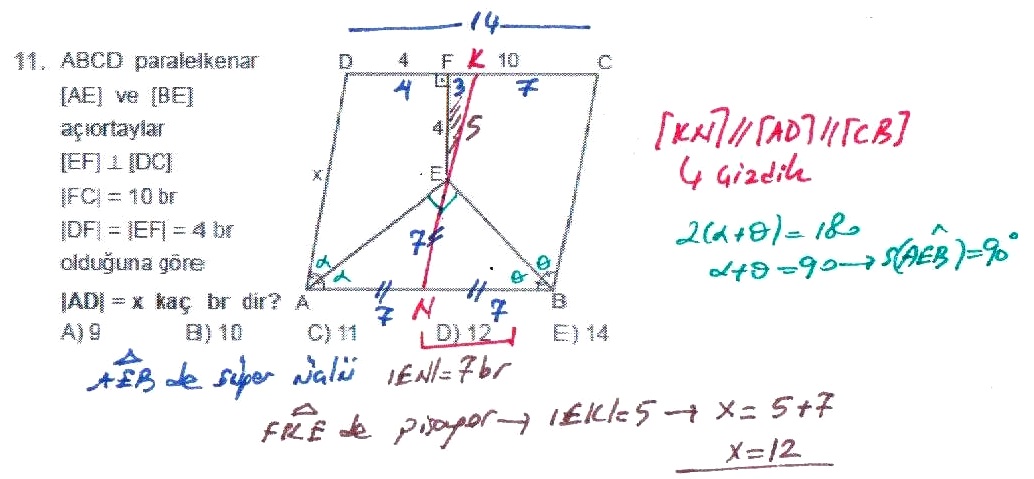 14
11. ABCD paralelkenar
[AE] ve [BE]
açıortaylar
[EF] ⊥ [DC]
|FC| = 10 br
|DF| = |EF| = 4 br
olduğuna göre
|AD| = x kaç br dir?
A) 9 B) 10 C) 11 D) 12 E) 14
D 4 F K 10 C
4 3 7
4 5
x E
7
α α θ θ
A N B
7 7
[KN] // [AD] // [CB]
↳ Çizdik
2(α+θ) = 180
α+θ = 90 → s(AEB) = 90°
AEB de süper üçlü |EN| = 7 br
FKE de pisagor → |EK| = 5 → x = 5+7
x = 12